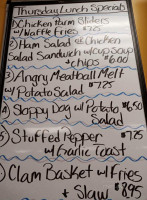 Thursday Lunch Specials
① Chicken Parm Sliders
w/ Waffle Fries $7.25
② Ham Salad or Chicken
Salad Sandwich w/ Cup Soup
+ chips $6.00
③ Angry Meatball Melt
w/ Potato Salad $7.25
④ Sloppy Dog w/ Potato $6.50
Salad
⑤ Stuffed Pepper $7.25
w/ Garlic Toast
Clam Basket w/ Fries
+ Slaw $8.95